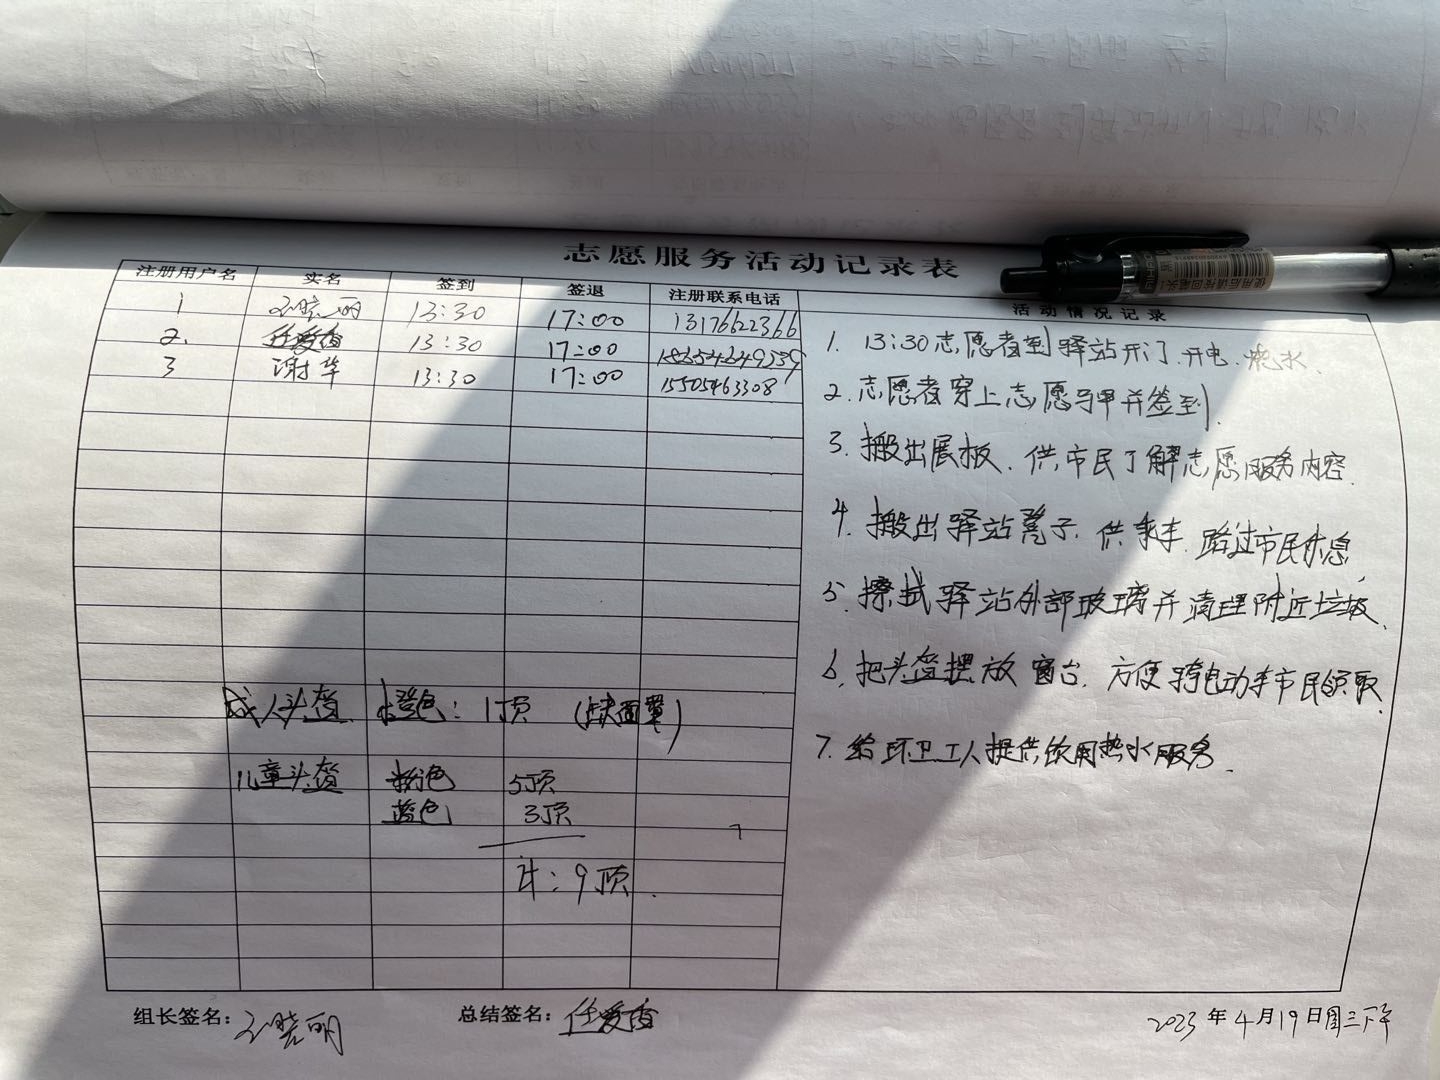 志愿服务活动记录表
注册用户名 实名 签到 签退 注册联系电话 活动情况记录
1 王晓明 13:30 17:00 13176622366
2. 任爱香 13:30 17:00 18654649759
3 谢华 13:30 17:00 15505463308
1. 13:30志愿者到驿站开门.开电.烧水.
2. 志愿者穿上志愿马甲并签到.
3. 搬出展板、供市民了解志愿服务内容.
4. 搬出驿站凳子.供乘车.路过市民休息.
5. 擦拭驿站外部玻璃并清理附近垃圾.
6. 把头盔摆放窗台.方便骑电动车市民领取.
7. 给环卫工人提供饮用热水服务.
成人头盔 橙色: 1顶 (缺面罩)
儿童头盔 粉色 5顶
蓝色 3顶
计: 9顶.
组长签名: 王晓明 总结签名: 任爱香 2023年4月19日周三下午